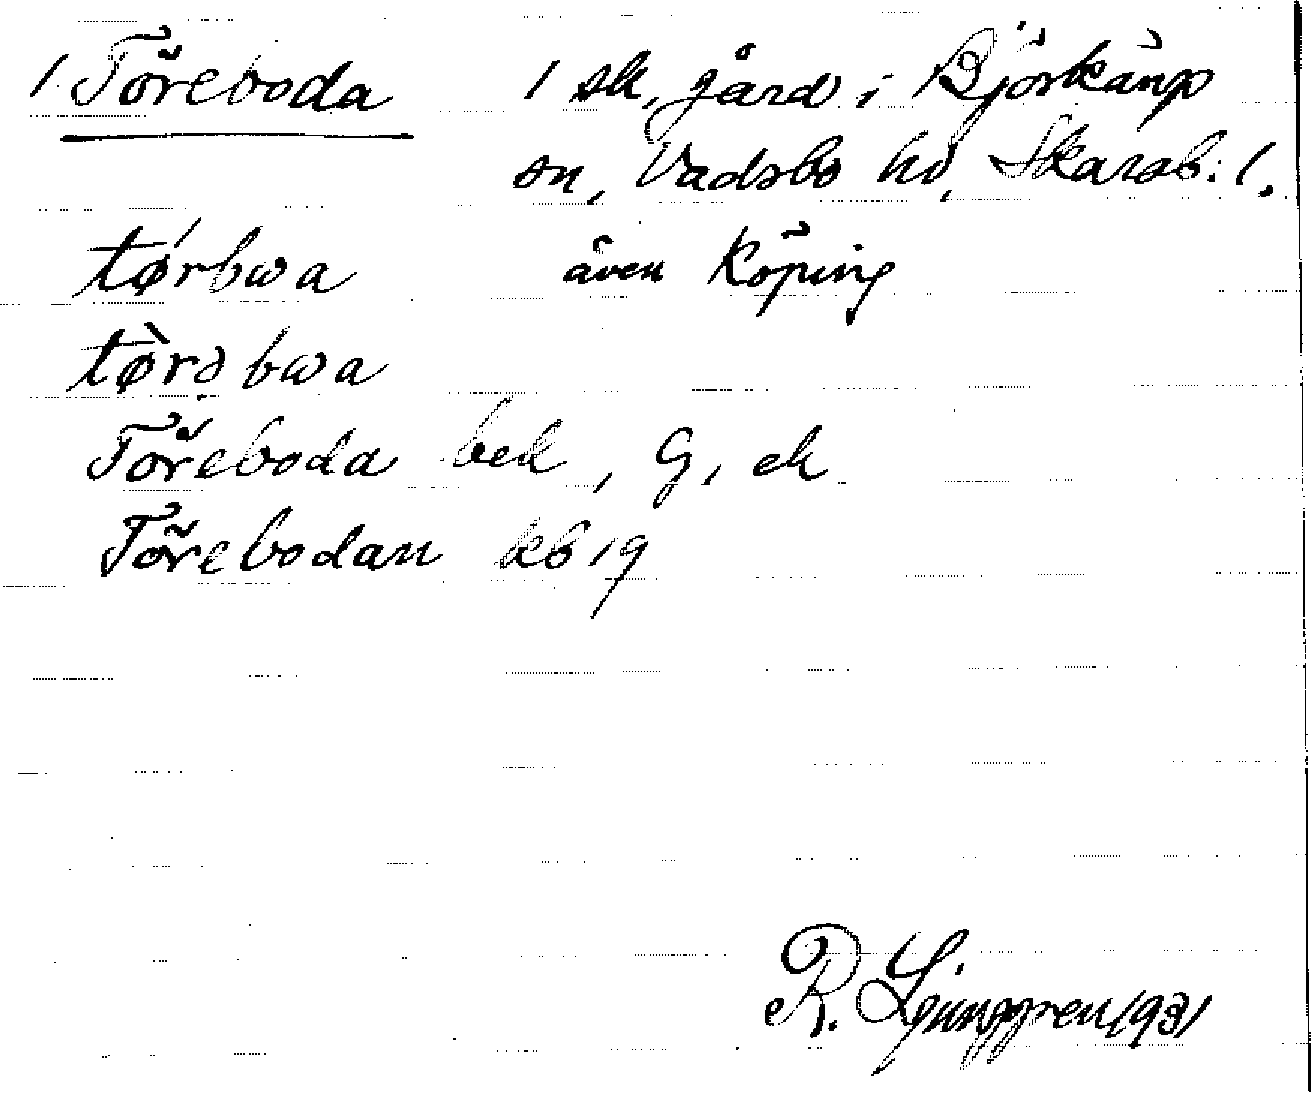 1. Töreboda 1 sk, gård i Björkäng
sn, Vadsbo hd, Skarab. l.
tǿrbwa även köping
tø̀rəbwa
Töreboda bek, G, ek
Törebodan kb 19
R. Ljunggren 1931